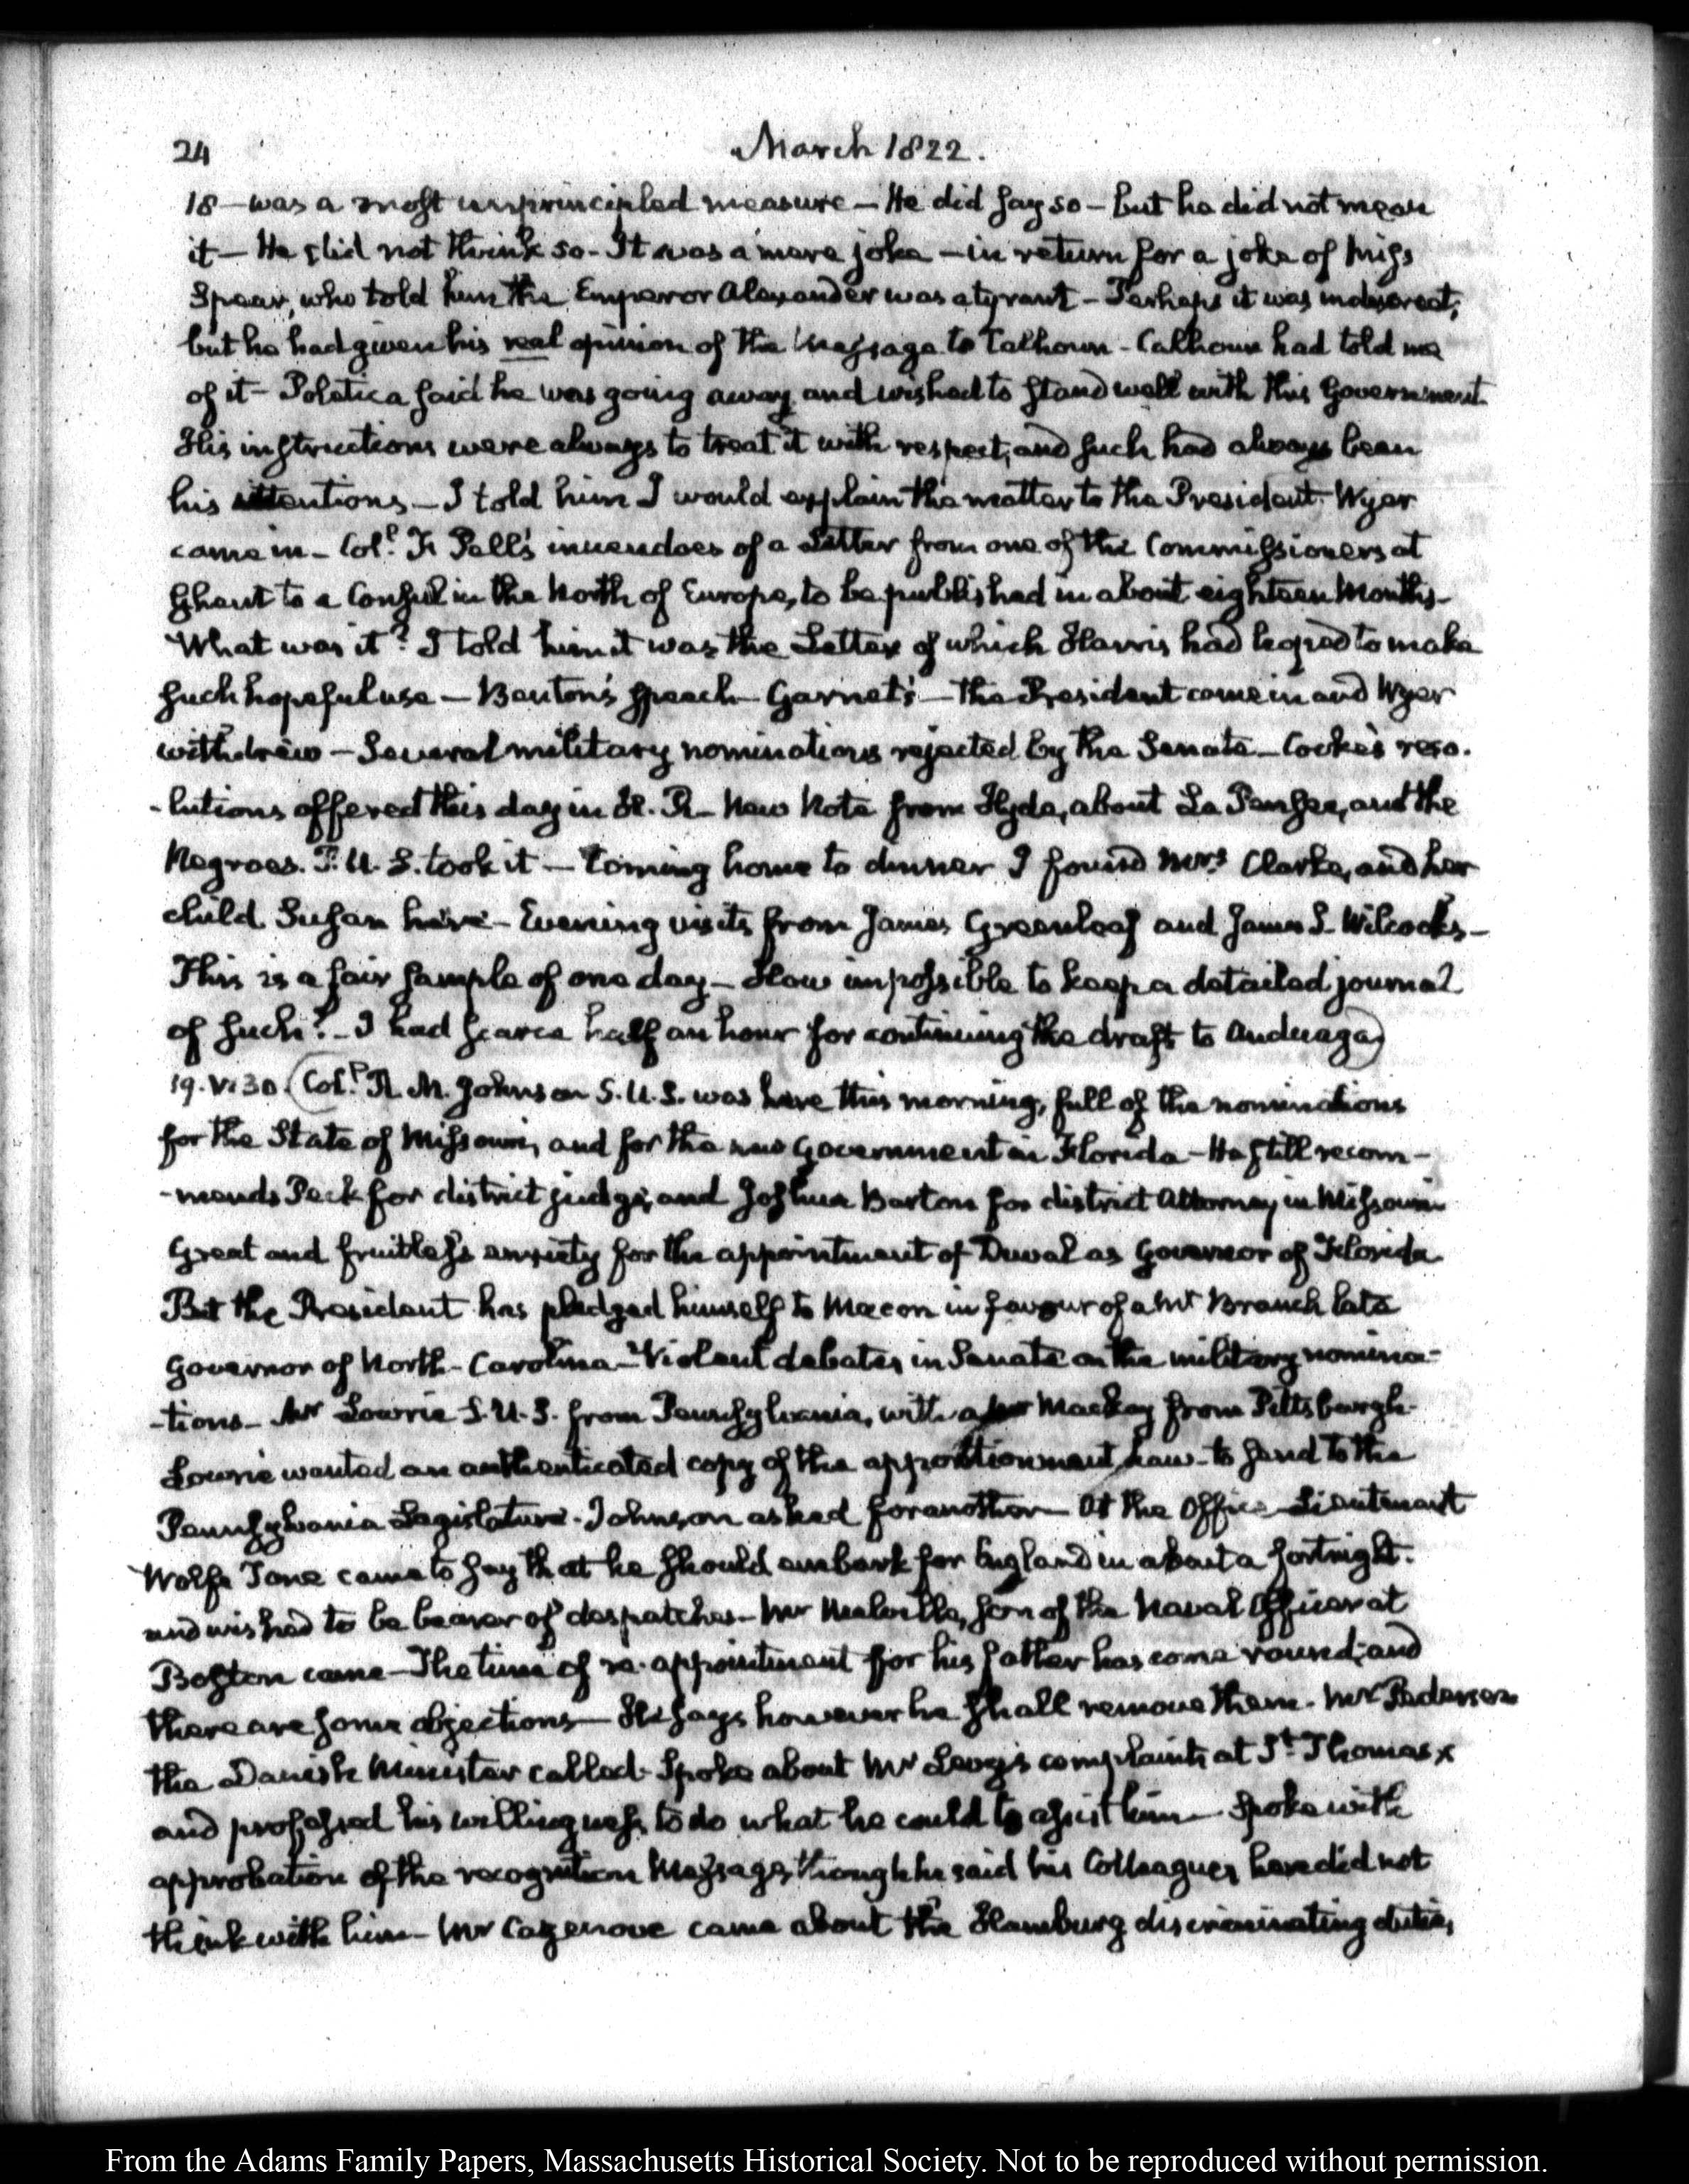 24
March 1822.
18 — was a most unprincipled measure — He did say so — but he did not mean
it — He did not think so - It was a mere joke — in return for a joke of Miss
Spear, who told him the Emperor Alexander was a tyrant - Perhaps it was indiscreet,
but he had given his real opinion of the Message to Calhoun - Calhoun had told me
of it - Poletica said he was going away and wished to stand well with this Government.
His instructions were always to treat it with respect, and such had always been
his — I told him I would explain the matter to the President. Wyer
came in - Colo. Pell's inuendoes of a Letter from one of the Commissioners at
Ghent to a Consul in the North of Europe, to be published in about eighteen Months -
What was it? I told him it was the Letter of which Harris had hoped to make
such hopeful use — Benton's speech - Garnet's — The President came in and Wyer
withdrew — Several military nominations rejected by the Senate - Cocke's reso.
-lutions offered this day in H. R - New Note from Hyde, about La Pensee, and the
Negroes. P. U. S. took it — Coming home to dinner I found Mrs Clarke, and her
child Susan here - Evening visits from James Greenleaf and James S. Wilcocks -
This is a fair sample of one day - How impossible to keep a detailed journal
of such! - I had scarce half an hour for continuing the draft to Anduaga)
19. V:30. (Colo. R. M. Johnson S. U. S. was here this morning, full of the nominations
for the State of Missouri, and for the new Government in Florida - He still recom -
-mends Peck for district judge, and Joshua Barton for district Attorney in Missouri
Great and fruitless anxiety for the appointment of Duval as Governor of Florida
But the President has pledged himself to Macon in favour of a Mr Branch late
Governor of North-Carolina - Violent debates in Senate on the military nomina-
-tions - Mr Lowrie S. U. S. from Pennsylvania, with a Mr Mackay from Pittsburgh-
Lowrie wanted an authenticated copy of the apportionment Law - to send to the
Pennsylvania Legislature - Johnson asked for another - At the Office Lieutenant
Wolfe Tone came to say that he should embark for England in about a fortnight.
and wished to be bearer of despatches - Mr Melville, son of the Naval Officer at
Boston came - The time of re-appointment for his father has come round, and
there are some objections - He says however he shall remove them. Mr Pedersen
the Danish Minister called. Spoke about Mr Levy's complaints at St. Thomas x
and professed his willingness to do what he could to assist him - Spoke with
approbation of the recognition Message, though he said his Colleagues here did not
think with him - Mr Cazenove came about the Hamburg discriminating duties,
From the Adams Family Papers, Massachusetts Historical Society. Not to be reproduced without permission.